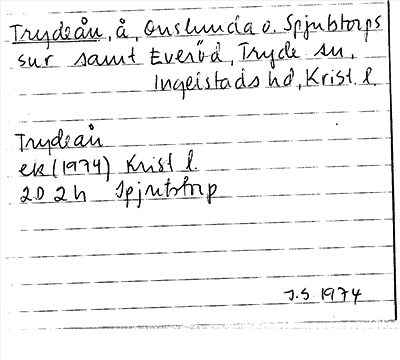 Trydeån, å, Onslunda o. Spjutstorps
sur samt Everöd, Tryde sn,
Ingelstads hd, Krist. l.
Trydeån
ek (1974) Krist l.
2D 2h Spjutstorp
J.S. 1974